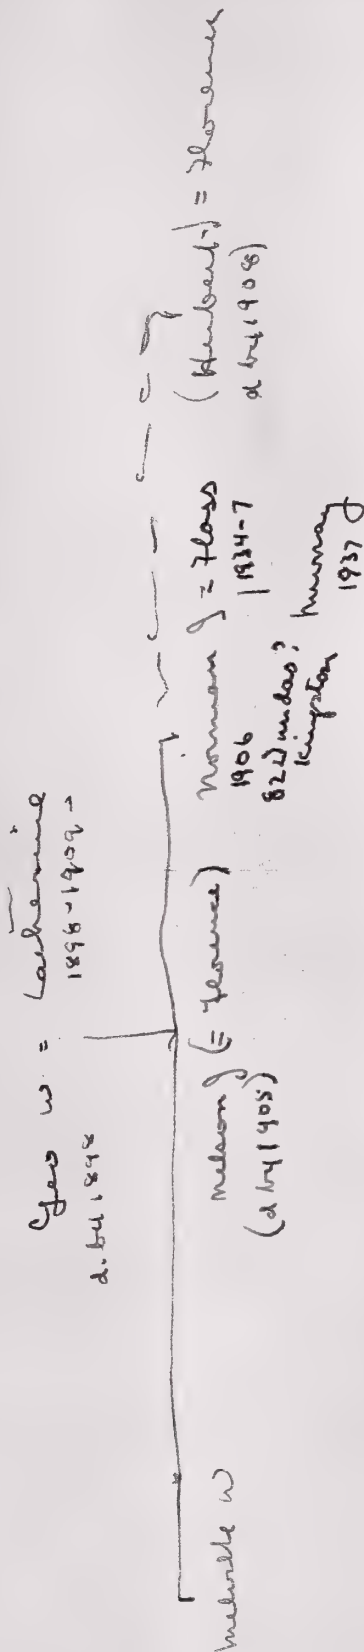 Geo W = Catherine
d. by 1898 1898-1909-
Melville W
Nelson J (= Florence)
(d by 1908)
Norman J = Floss
1906 1934-7
822 Dundas?
Kingston
Murray
1937
(Herbert) = Florence
d by 1908)